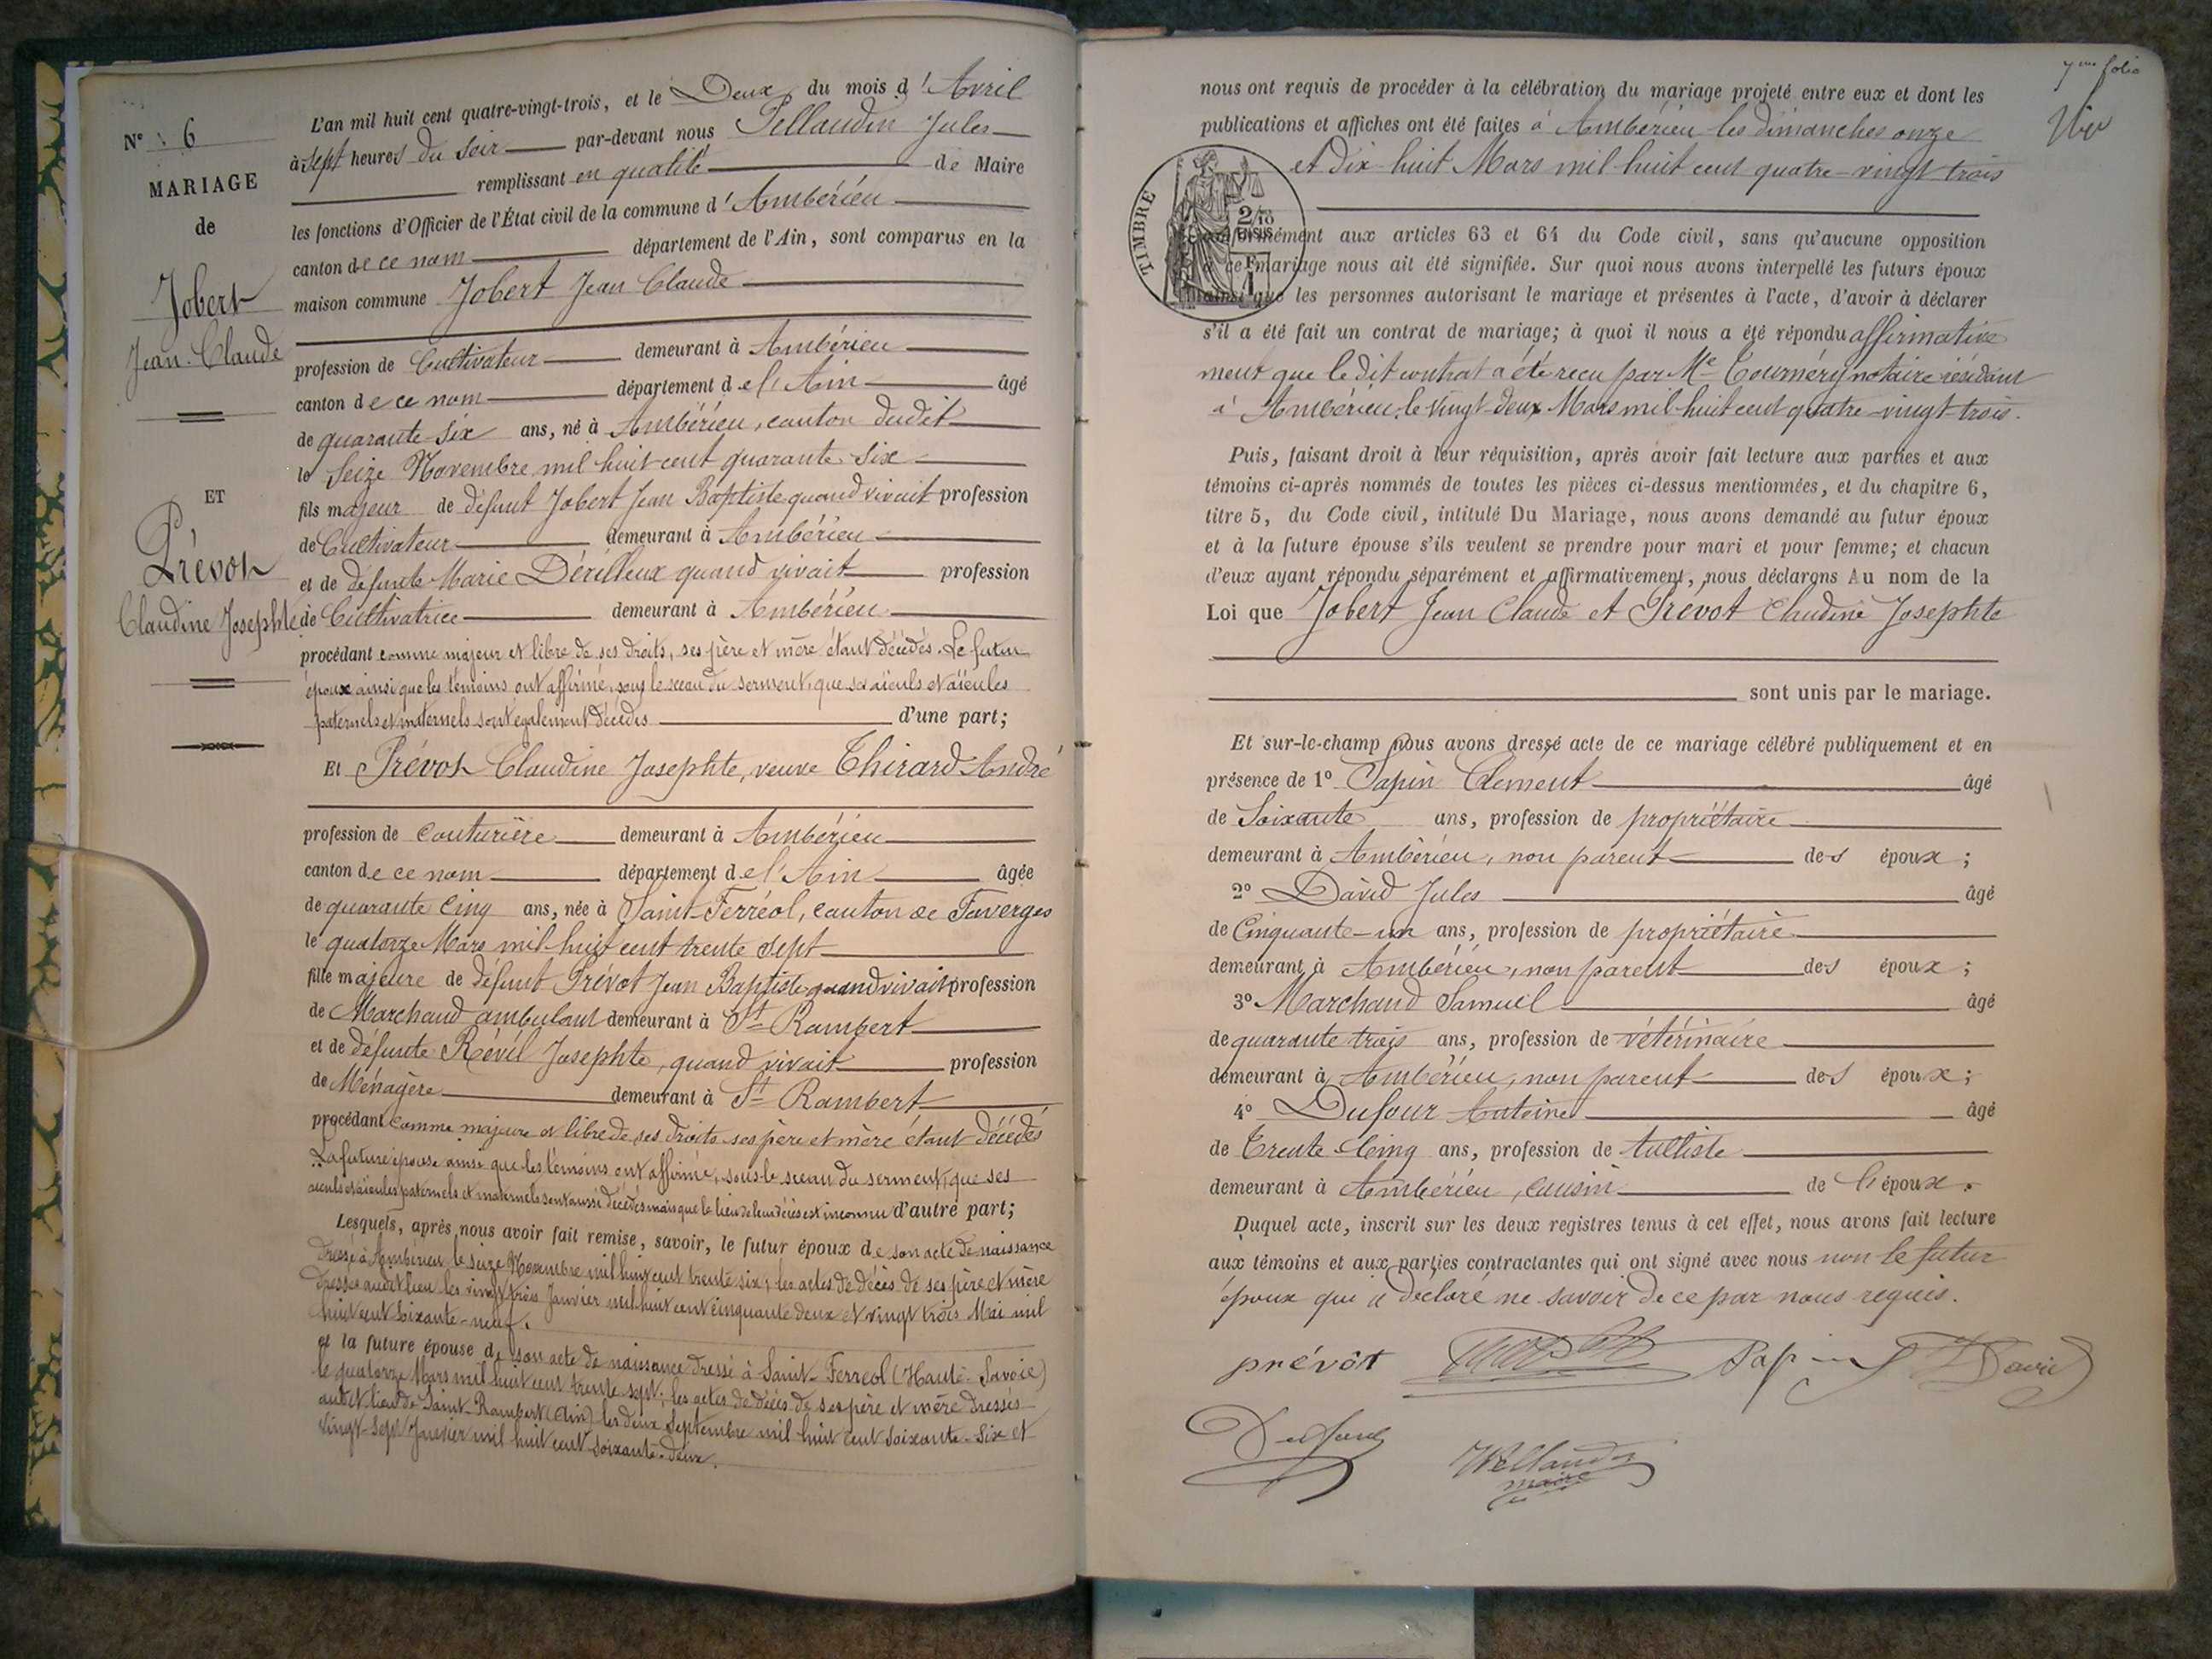 N° 6
MARIAGE
de
Jobert
Jean-Claude
ET
Prévot
Claudine Josephte
L'an mil huit cent quatre-vingt-trois, et le Deux du mois d'Avril
à sept heures du soir par-devant nous Pellaudin Jules
remplissant en qualité de Maire
les fonctions d'Officier de l'État civil de la commune d'Ambérieu
canton de ce nom département de l'Ain, sont comparus en la
maison commune Jobert Jean Claude
profession de Cultivateur demeurant à Ambérieu
canton de ce nom département de l'Ain âgé
de quarante-six ans, né à Ambérieu, canton dudit
le Seize Novembre mil huit cent quarante-six
fils majeur de défunt Jobert Jean Baptiste quand vivait profession
de Cultivateur demeurant à Ambérieu
et de défunte Marie Dérilleux quand vivait profession
de Cultivatrice demeurant à Ambérieu
procédant comme majeur et libre de ses droits, ses père et mère étant décédés. Le futur
époux ainsi que les témoins ont affirmé, sous le sceau du serment, que ses aïeuls et aïeules
paternels et maternels sont également décédés d'une part;
Et Prévot Claudine Josephte, veuve Thirard André
profession de couturière demeurant à Ambérieu
canton de ce nom département de l'Ain âgée
de quarante cinq ans, née à Saint-Ferréol, canton de Faverges
le quatorze Mars mil huit cent trente sept
fille majeure de défunt Prévot Jean Baptiste quand vivait profession
de Marchand ambulant demeurant à St Rambert
et de défunte Révil Josephte, quand vivait profession
de Ménagère demeurant à St Rambert
procédant comme majeure et libre de ses droits ses père et mère étant décédés
La future épouse ainsi que les témoins ont affirmé, sous le sceau du serment, que ses
aïeuls et aïeules paternels et maternels sont aussi décédés mais que le lieu de leur décès est inconnu d'autre part;
Lesquels, après nous avoir fait remise, savoir, le futur époux de son acte de naissance
dressé à Ambérieu le seize Novembre mil huit cent trente six; les actes de décès de ses père et mère
dressés audit lieu les vingt trois Janvier mil huit cent cinquante deux et vingt trois Mai mil
huit cent soixante-neuf.
et la future épouse de son acte de naissance dressé à Saint-Ferréol (Haute-Savoie)
le quatorze Mars mil huit cent trente sept; les actes de décès de ses père et mère dressés
audit lieu de Saint-Rambert (Ain) les deux Septembre mil huit cent soixante-six et
vingt-sept Janvier mil huit cent soixante-deux.
7me folio
nous ont requis de procéder à la célébration du mariage projeté entre eux et dont les
publications et affiches ont été faites à Ambérieu les dimanches onze
et dix-huit Mars mil huit cent quatre-vingt trois
TIMBRE
2/10
conformément aux articles 63 et 64 du Code civil, sans qu'aucune opposition
à ce mariage nous ait été signifiée. Sur quoi nous avons interpellé les futurs époux
ainsi que les personnes autorisant le mariage et présentes à l'acte, d'avoir à déclarer
s'il a été fait un contrat de mariage; à quoi il nous a été répondu affirmative
ment que le dit contrat a été reçu par Me Tournéry notaire résidant
à Ambérieu, le vingt-deux Mars mil huit cent quatre-vingt-trois.
Puis, faisant droit à leur réquisition, après avoir fait lecture aux parties et aux
témoins ci-après nommés de toutes les pièces ci-dessus mentionnées, et du chapitre 6,
titre 5, du Code civil, intitulé Du Mariage, nous avons demandé au futur époux
et à la future épouse s'ils veulent se prendre pour mari et pour femme; et chacun
d'eux ayant répondu séparément et affirmativement, nous déclarons Au nom de la
Loi que Jobert Jean Claude et Prévot Claudine Josephte
sont unis par le mariage.
Et sur-le-champ nous avons dressé acte de ce mariage célébré publiquement et en
présence de 1° Papin Clement âgé
de Soixante ans, profession de propriétaire
demeurant à Ambérieu, non parent des époux;
2° David Jules âgé
de Cinquante-un ans, profession de propriétaire
demeurant à Ambérieu, non parent des époux;
3° Marchand Samuel âgé
de quarante trois ans, profession de vétérinaire
demeurant à Ambérieu, non parent des époux;
4° Dufour Antoine âgé
de Trente-Cinq ans, profession de tulliste
demeurant à Ambérieu, cousin de l'époux.
Duquel acte, inscrit sur les deux registres tenus à cet effet, nous avons fait lecture
aux témoins et aux parties contractantes qui ont signé avec nous non le futur
époux qui a déclaré ne savoir de ce par nous requis.
prévôt Papin J David
Dufour
Pellaudin
maire